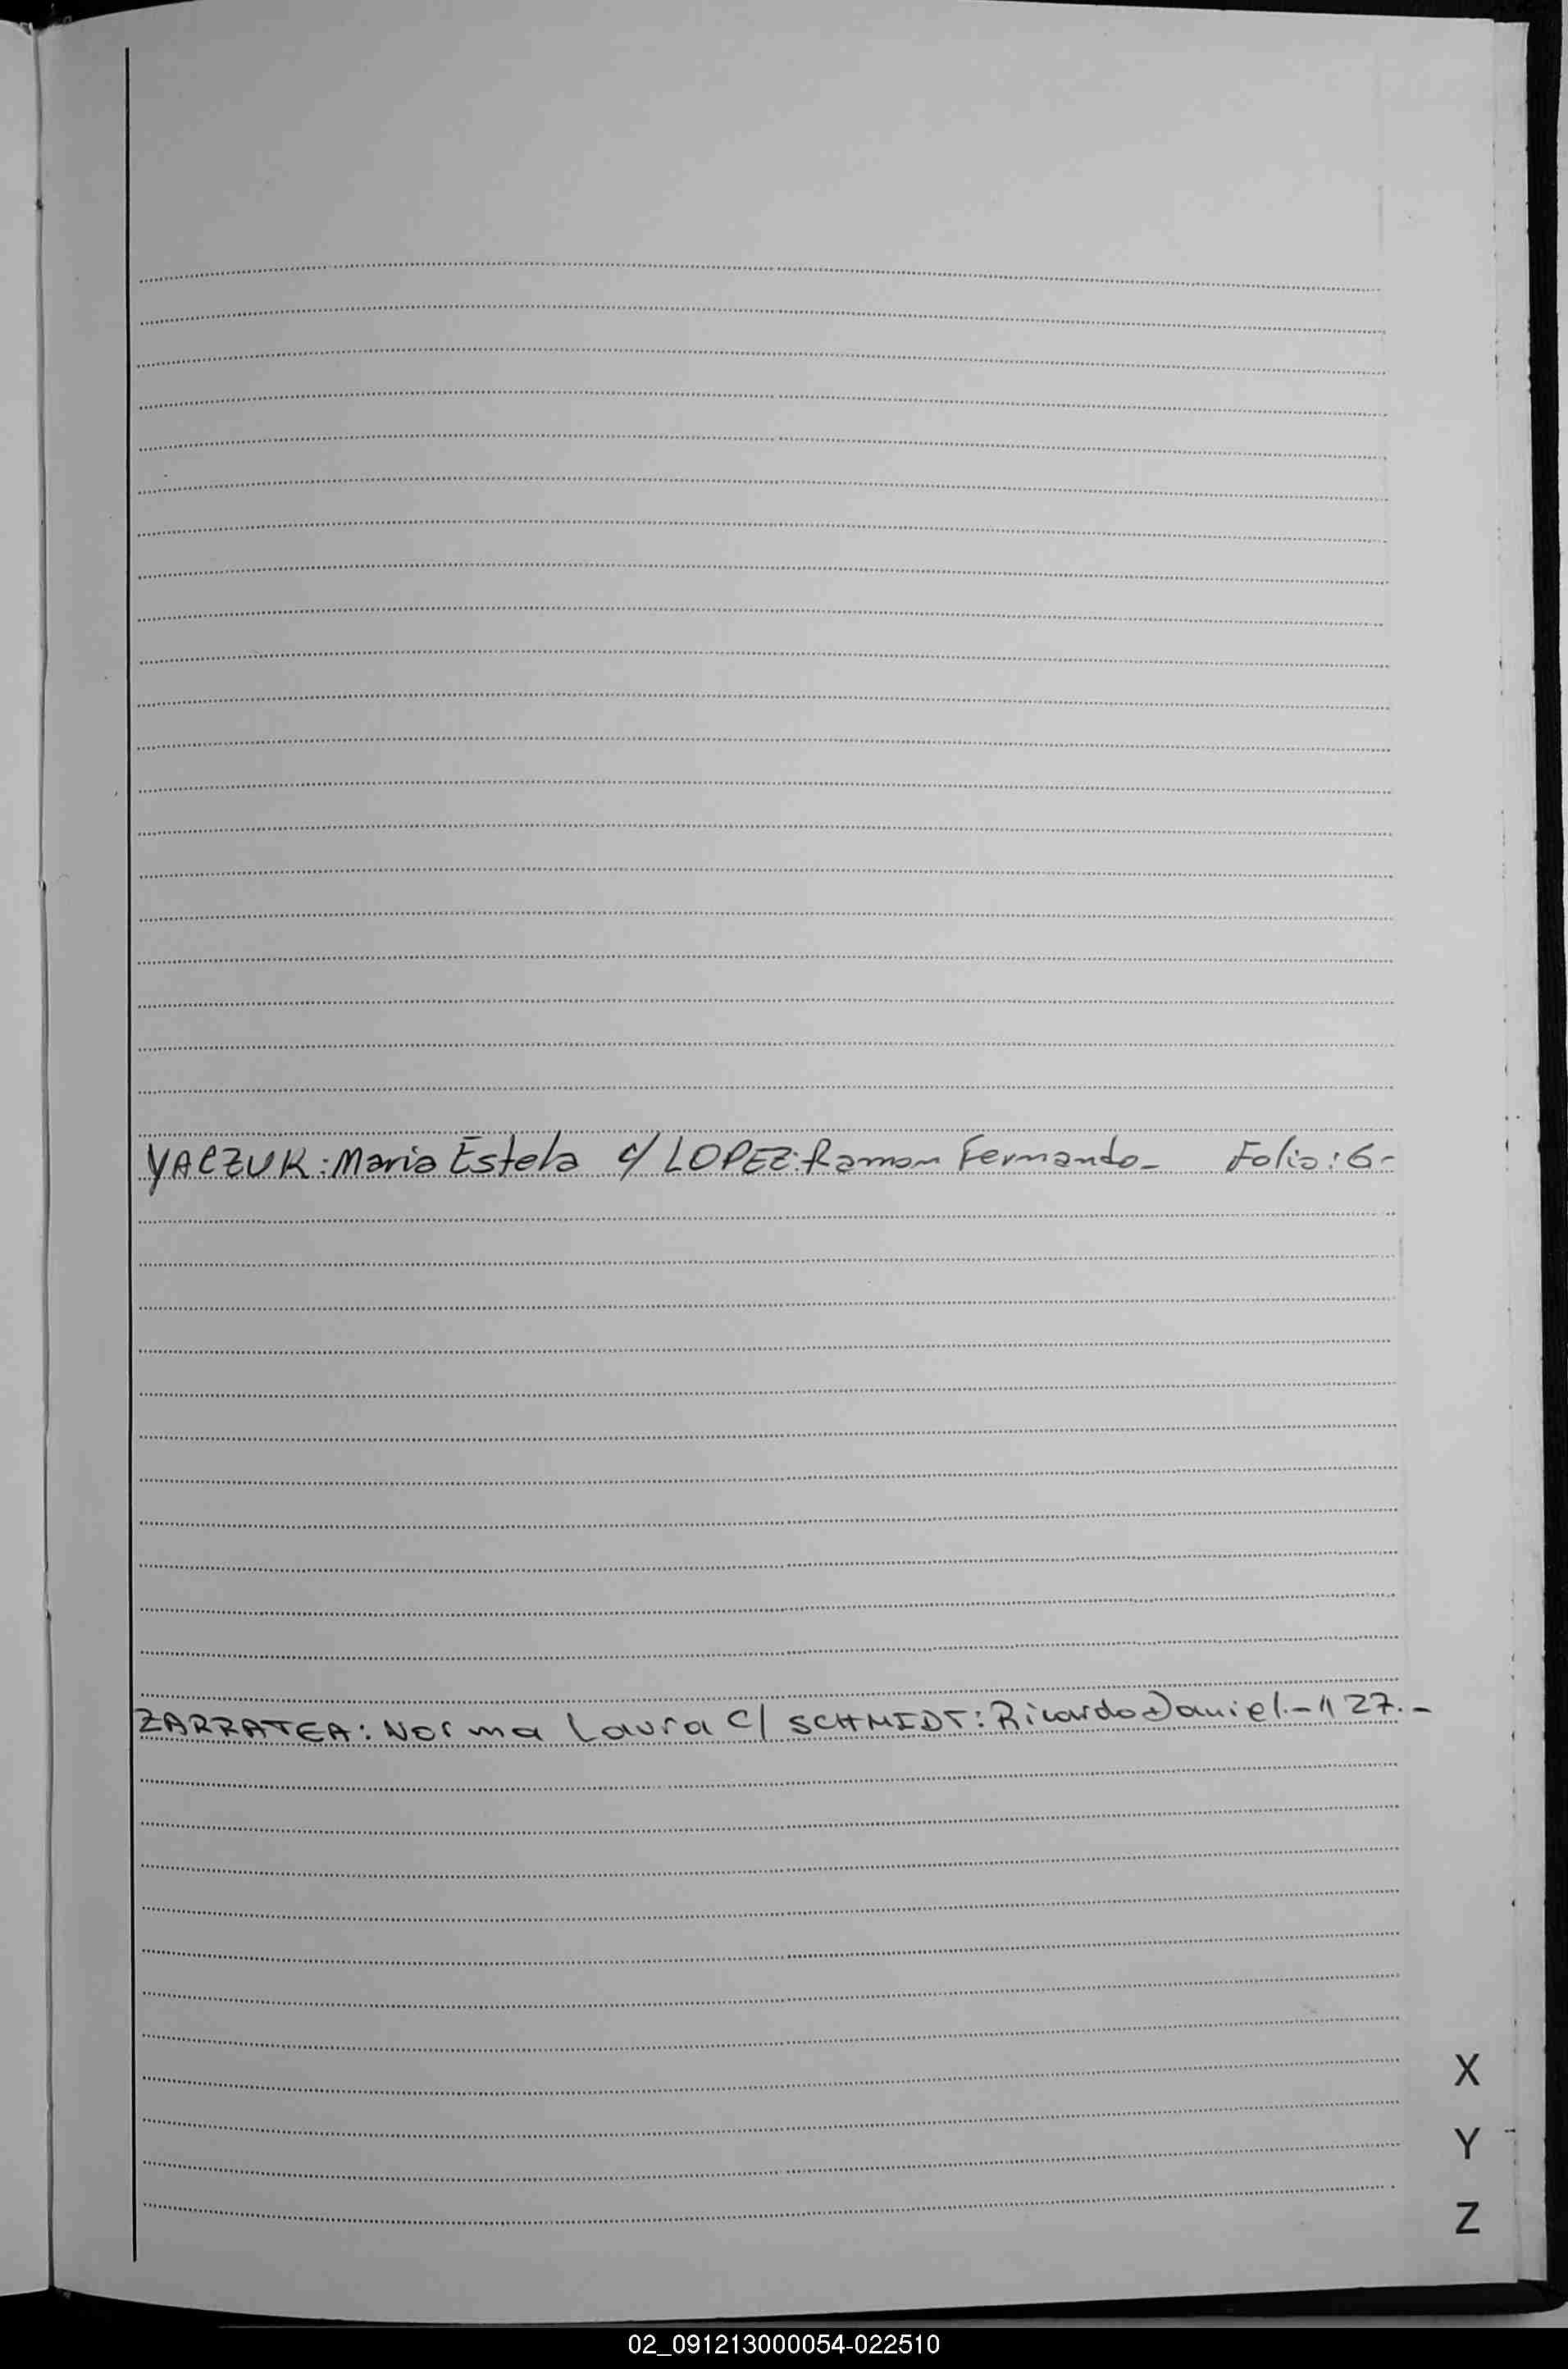 YACZUK: Maria Estela c/ LOPEZ: Ramon Fernando- Folio: 6-
ZARZATEA: Norma Laura C/ SCHMIDT: Ricardo Daniel.- " 27.-
X
Y
Z
02_091213000054-022510